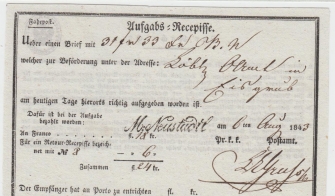 Fahrpost.
Aufgabs-Recepisse.
Ueber einen Brief mit 31 f 33 B. N
welcher zur Beförderung unter der Adresse: Löbl. Oamt in
Eisgrub
am heutigen Tage hierorts richtig aufgegeben worden ist.
Dafür ist bei der Aufgabe
bezahlt worden: M. Neustadtl am 6 Aug 1843
An Franco fl. 18 kr. Pr. k. k. Postamt.
Für ein Retour-Recepisse bezeich-
net mit № 3 – 6 –
Zusammen fl. 24 kr.
Der Empfänger hat an Porto zu entrichten fl. kr.